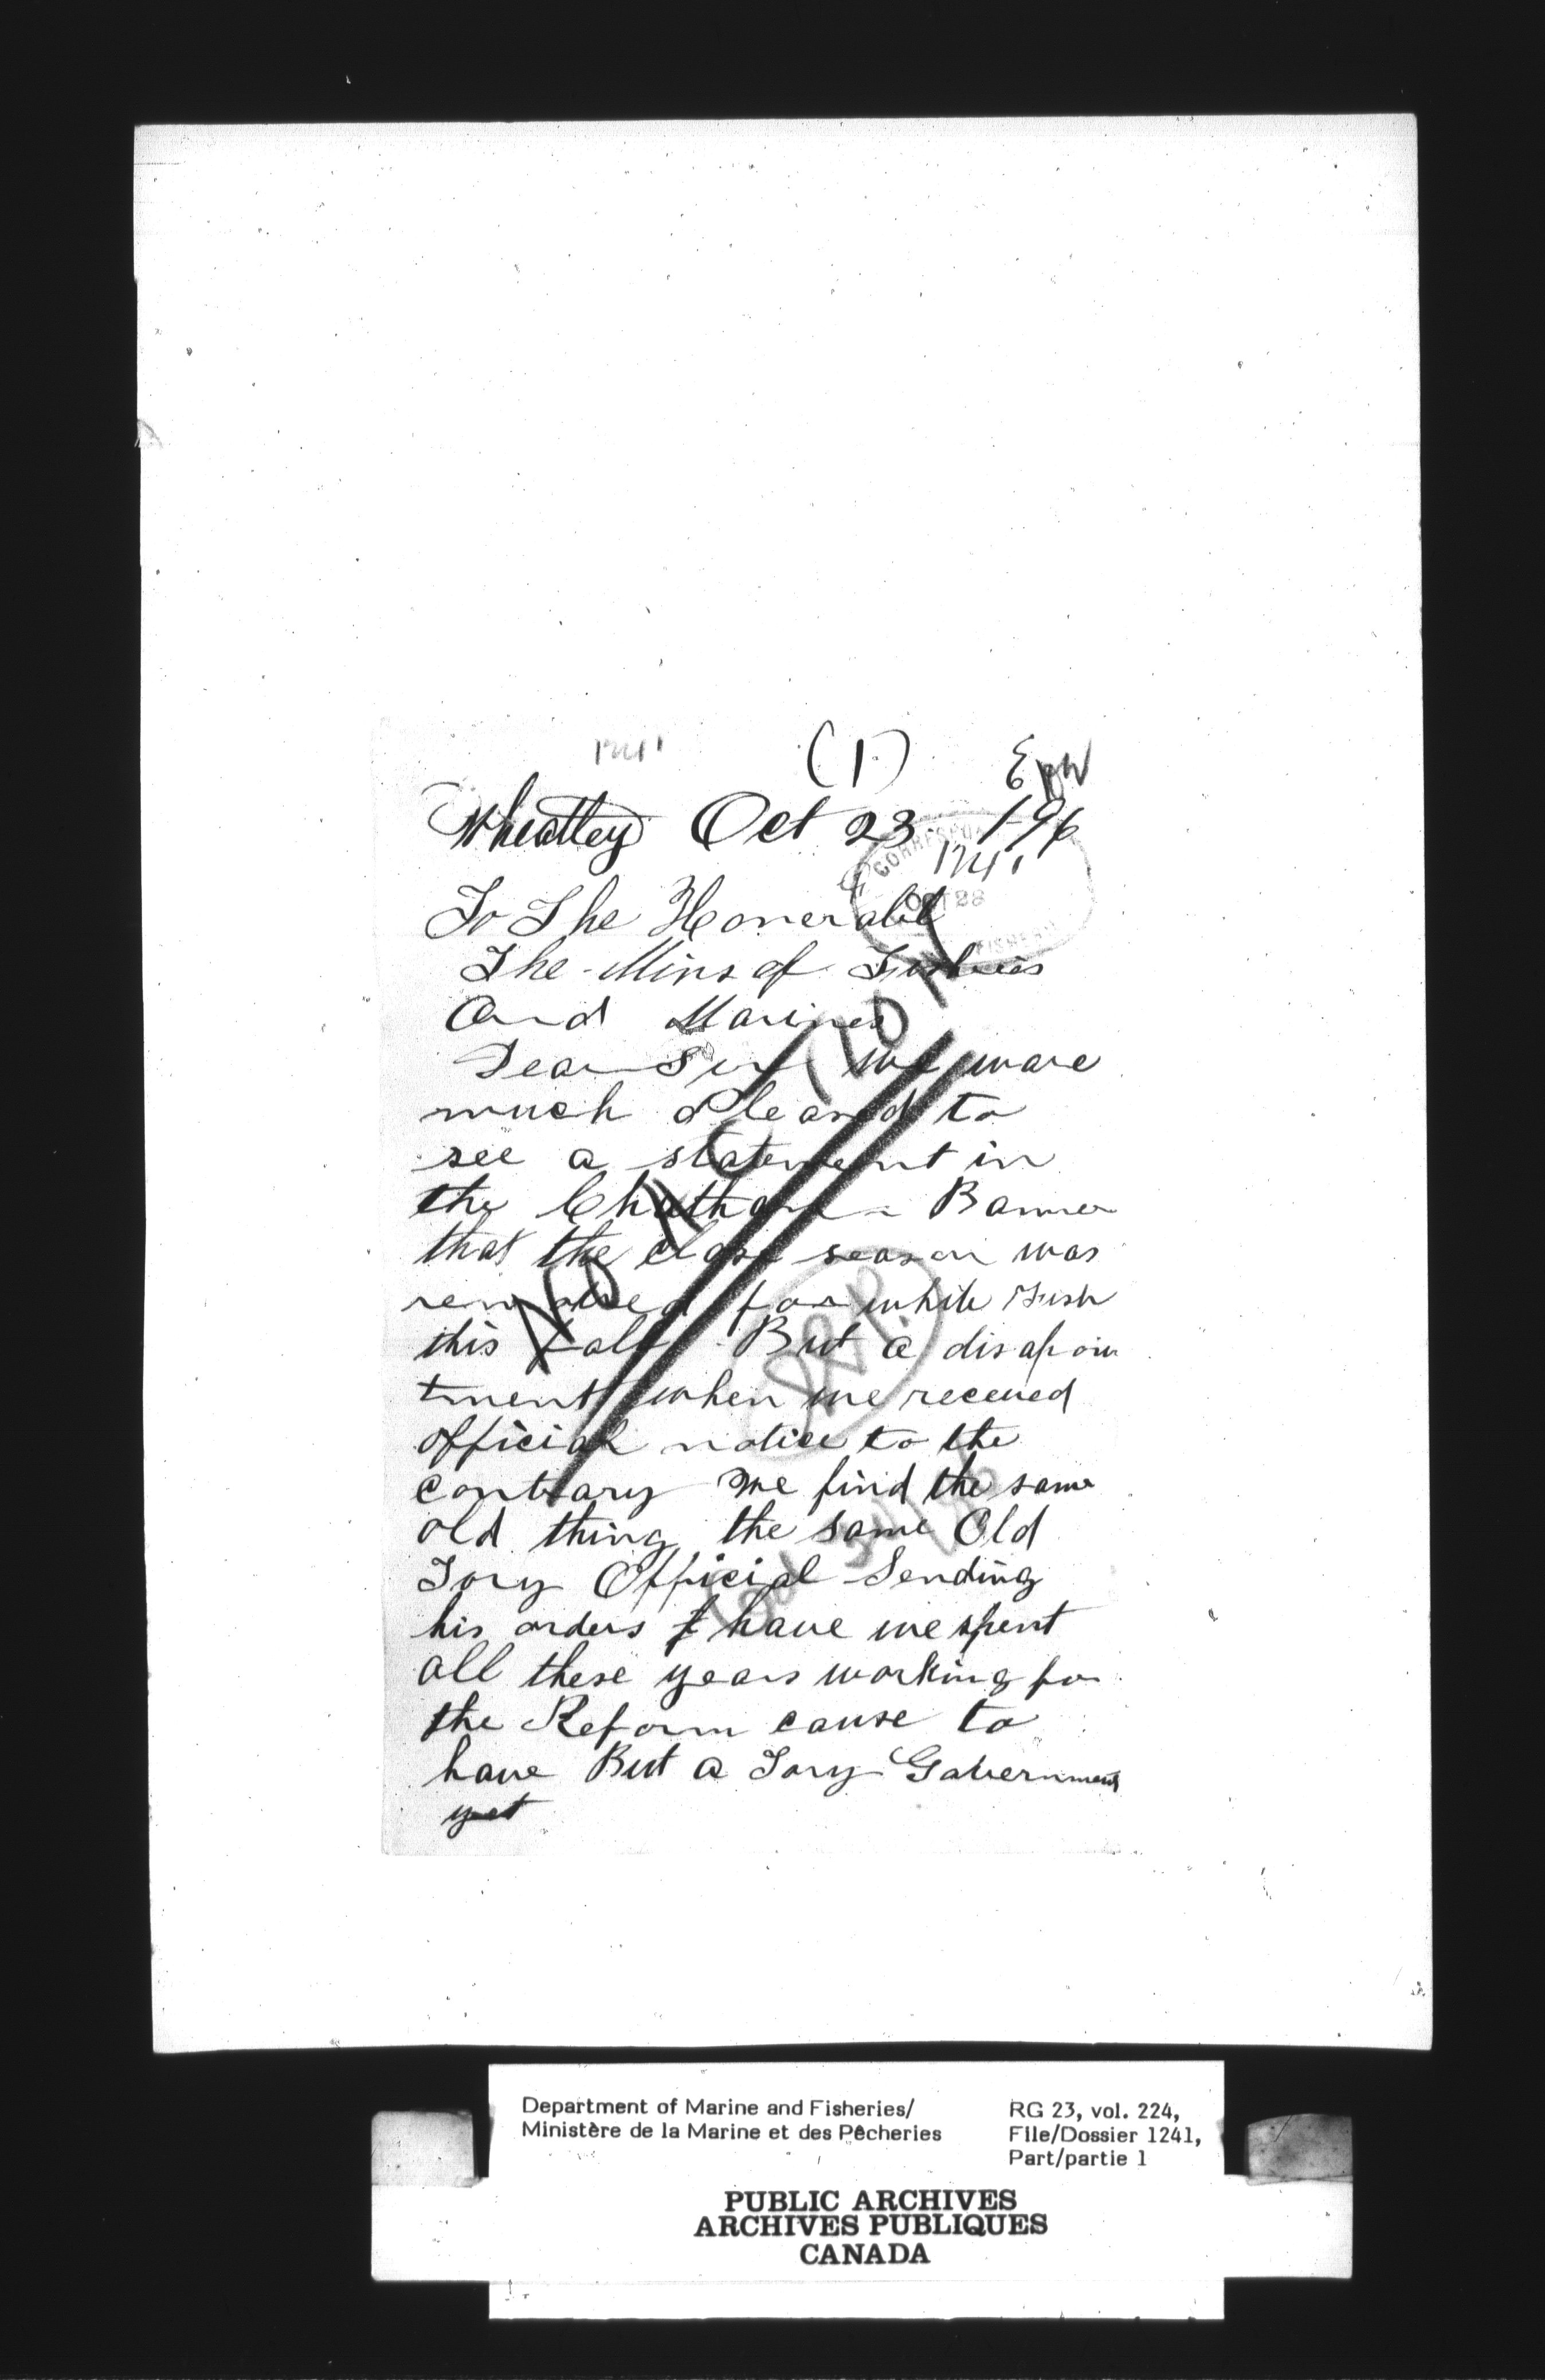 1241
(1)
Wheatley Oct 23 1-96
1241
OCT 28
To The Honerable
The Mins of Fisheries
And Marines
Dear Sir we ware
much Pleased to
see a statement in
the Chatham Banner
that the close season was
removed for white Fish
this Fall But a disapoin
tment when we receued
official notice to the
contrary we find the same
old thing the same Old
Tory Official Sending
his orders have we spent
all these years working for
the Reform cause to
have But a Tory Government
yet
NO ACTION
Department of Marine and Fisheries/
Ministère de la Marine et des Pêcheries
RG 23, vol. 224,
File/Dossier 1241,
Part/partie 1
PUBLIC ARCHIVES
ARCHIVES PUBLIQUES
CANADA